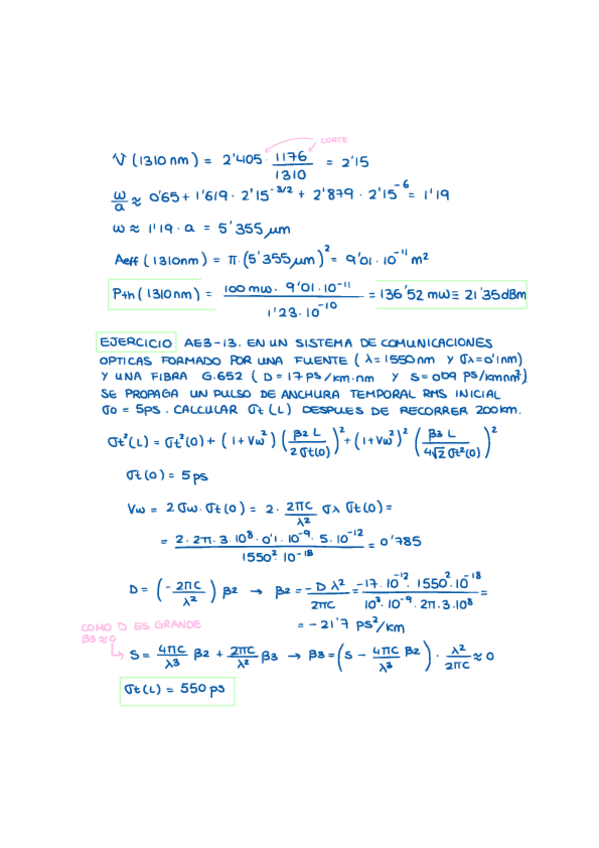 CORTE
V (1310 nm) = 2'405 · 1176/1310 = 2'15
ω/a ≈ 0'65 + 1'619 · 2'15^-3/2 + 2'879 · 2'15^-6 = 1'19
ω ≈ 1'19 · a = 5'355 μm
Aeff (1310nm) = π · (5'355 μm)² = 9'01 · 10^-11 m²
Pth (1310 nm) = 100 mw · 9'01 · 10^-11 / 1'23 · 10^-10 = 136'52 mW ≡ 21'35 dBm
EJERCICIO AE3-13. EN UN SISTEMA DE COMUNICACIONES
OPTICAS FORMADO POR UNA FUENTE ( λ=1550nm Y σλ=0'1nm)
Y UNA FIBRA G.652 ( D = 17 ps/km·nm Y S= 0'09 ps/kmnm²)
SE PROPAGA UN PULSO DE ANCHURA TEMPORAL RMS INICIAL
σ0 = 5ps. CALCULAR σt (L) DESPUES DE RECORRER 200km.
σt²(L) = σt²(0) + (1+Vω²) (β2 L / 2σt(0))² + (1+Vω²)² (β3 L / 4√2 σt²(0))²
σt (0) = 5 ps
Vω = 2 σω · σt (0) = 2 · 2πc/λ² σλ σt(0) =
= 2 · 2π · 3 · 10^8 · 0'1 · 10^-9 · 5 · 10^-12 / 1550² · 10^-18 = 0'785
D = (-2πc/λ²) β2 → β2 = -D λ²/2πc = -17 · 10^-12 · 1550² · 10^-18 / 10^3 · 10^-9 · 2π · 3 · 10^8 =
= -21'7 ps²/km
COMO D ES GRANDE
β3 ≈ 0
S = 4πc/λ³ β2 + 2πc/λ² β3 → β3 = (S - 4πc/λ³ β2) · λ²/2πc ≈ 0
σt (L) = 550 ps